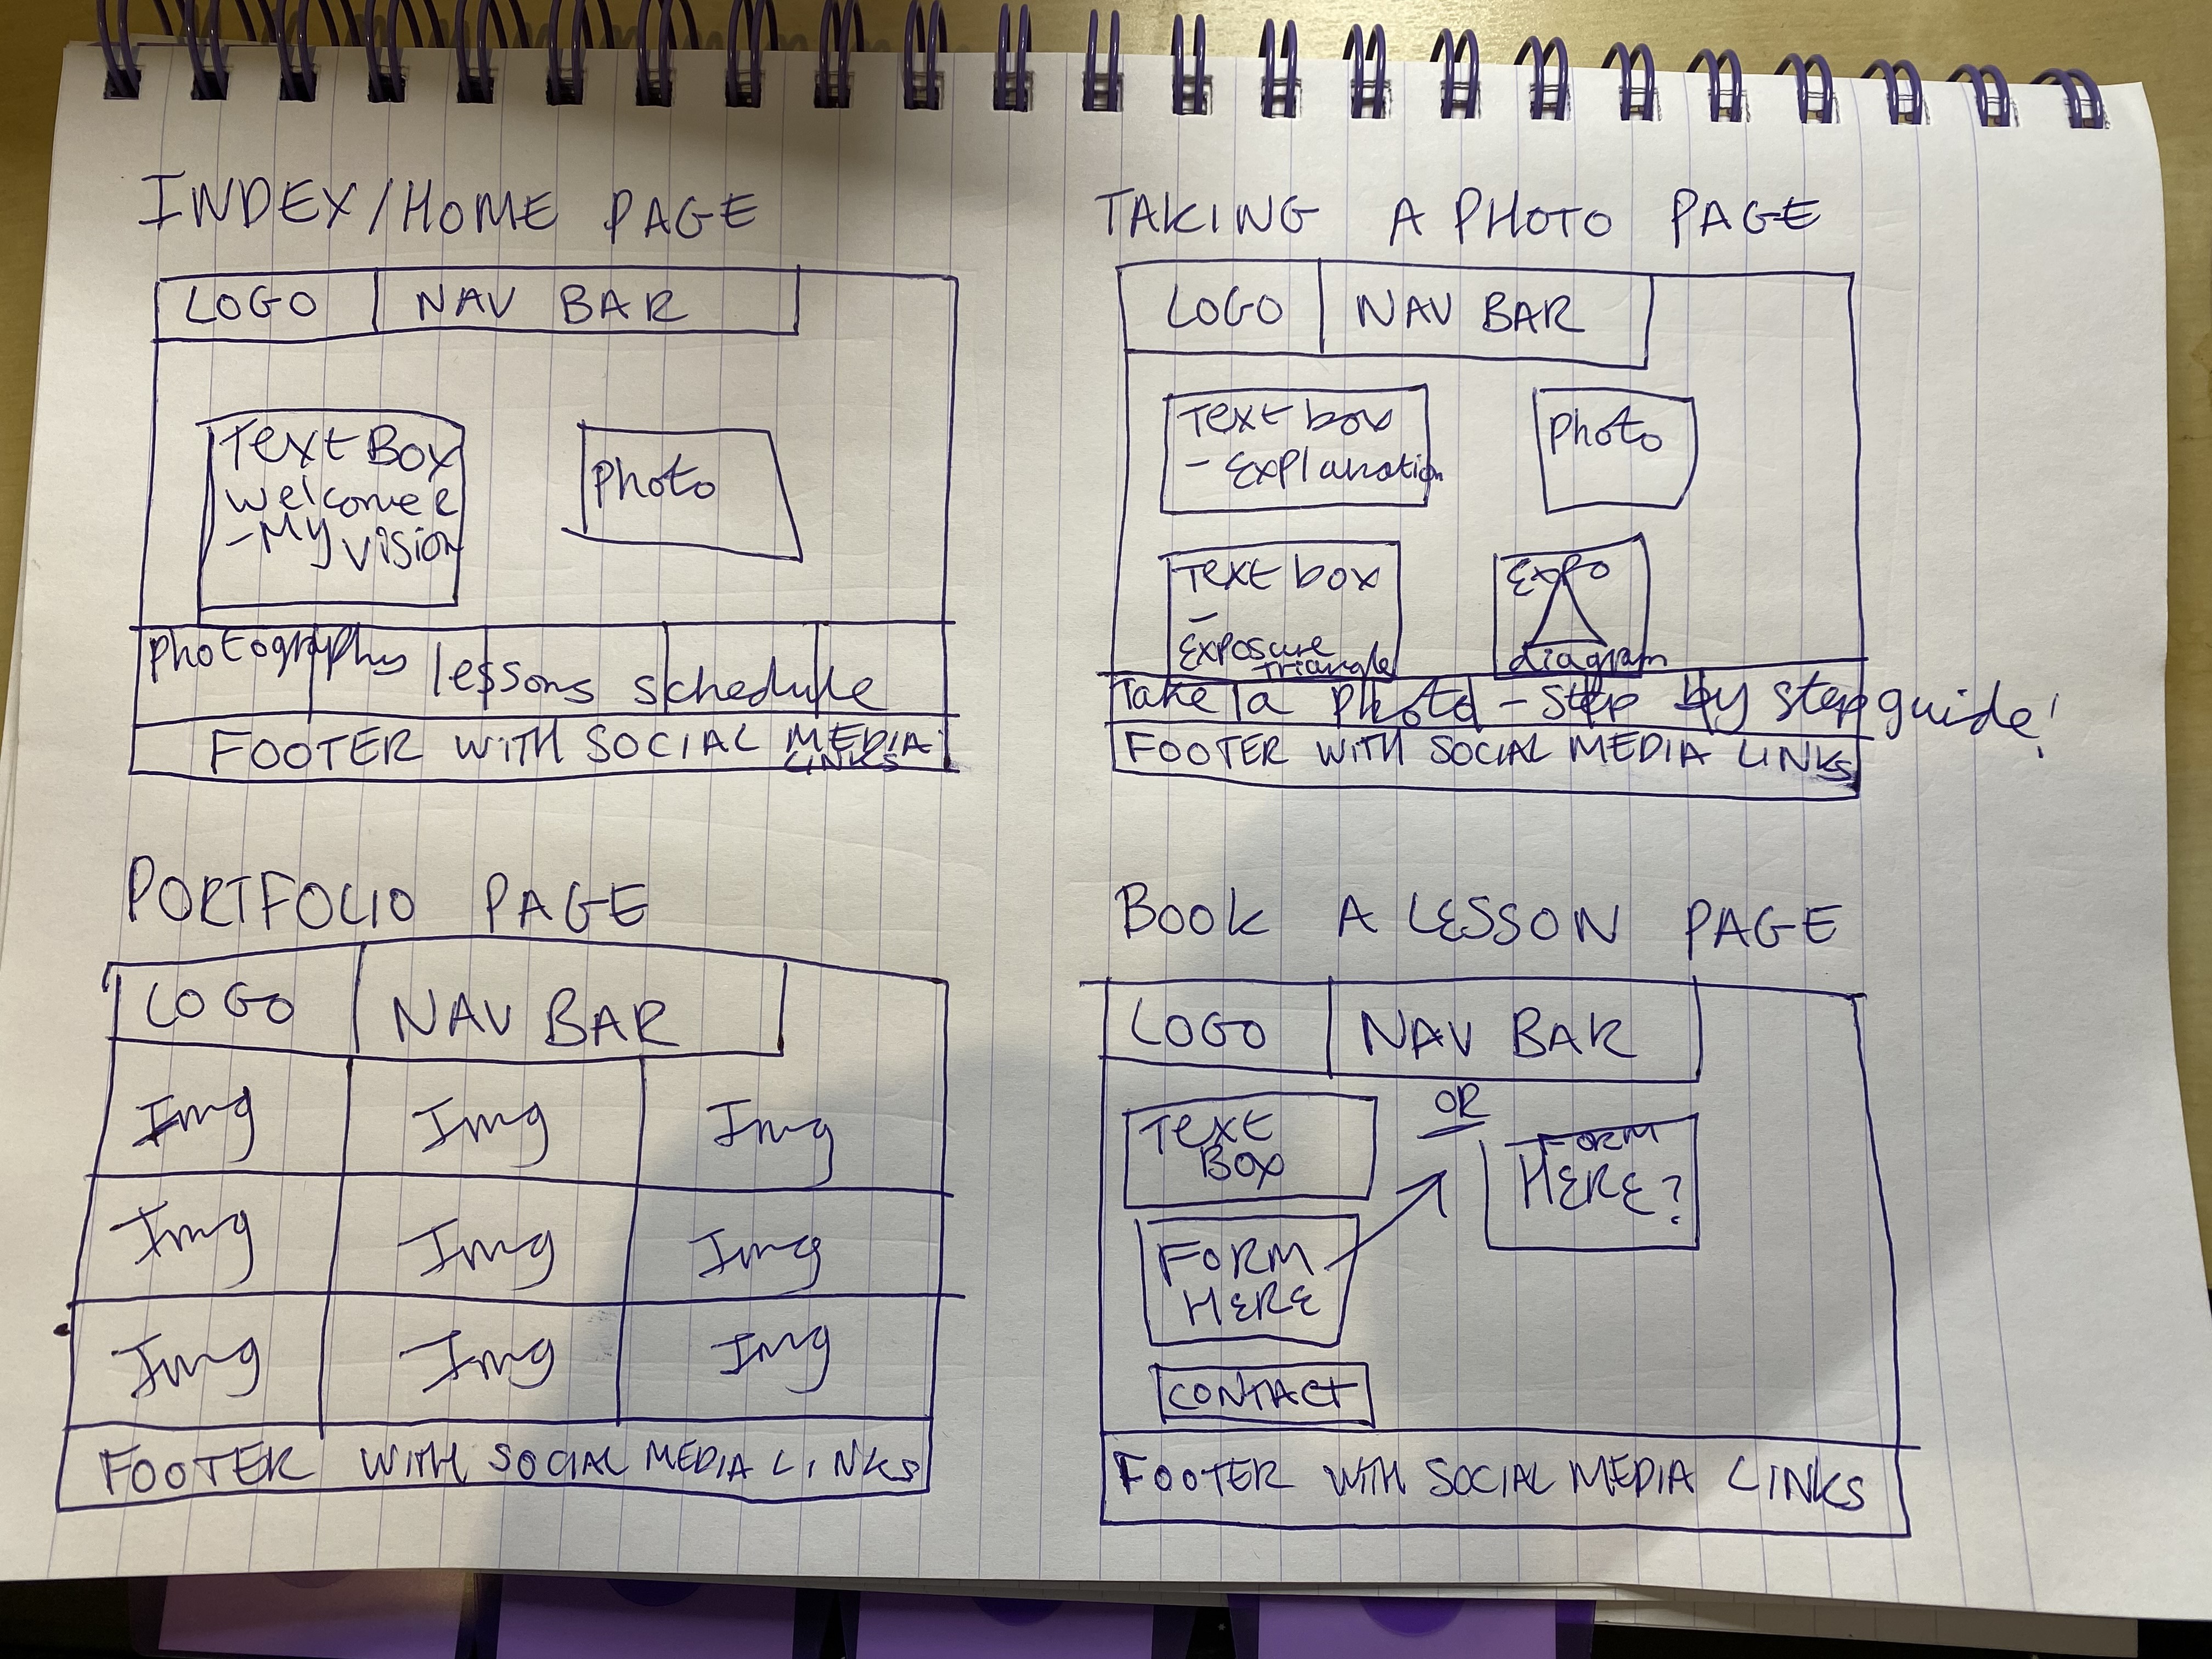 INDEX/HOME PAGE
LOGO NAV BAR
Text Box
welcome
-My
vision
Photo
Photography lessons schedule
FOOTER WITH SOCIAL MEDIA
LINKS
TAKING A PHOTO PAGE
LOGO NAV BAR
Text box
- Explanation
Photo
Text box
-
Exposure
triangle
Expo
diagram
Take a photo - Step by step guide!
FOOTER WITH SOCIAL MEDIA LINKS
PORTFOLIO PAGE
LOGO NAV BAR
Img Img Img
Img Img Img
Img Img Img
FOOTER WITH SOCIAL MEDIA LINKS
BOOK A LESSON PAGE
LOGO NAV BAR
TEXT
BOX
OR
FORM
HERE?
FORM
HERE
CONTACT
FOOTER WITH SOCIAL MEDIA LINKS